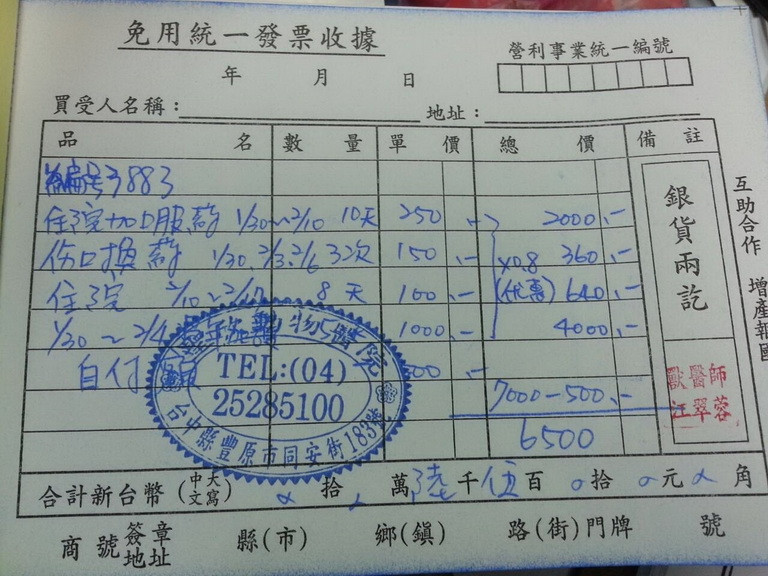 免用統一發票收據
營利事業統一編號
年 月 日
買受人名稱： 地址：
品名 數量 單價 總價 備註
編号3883
住院加口服葯 1/30～2/10 10天 250.- 2000.-
伤口換葯 1/30.2/3.2/6 3次 150.- x0.8 360.-
住院 2/10～2/17 8天 100.- (优惠) 640.-
1/30～2/4 1000.- 4000.-
自付額 500.-
7000-500.-
6500
銀貨兩訖
獸醫師
江翠蓉
互助合作 增產報國
動物醫院
TEL:(04)
25285100
台中縣豐原市同安街183號
合計新台幣(中文大寫) 拾 萬 陸千伍百 拾 元 角
商號簽章地址 縣(市) 鄉(鎮) 路(街)門牌 號